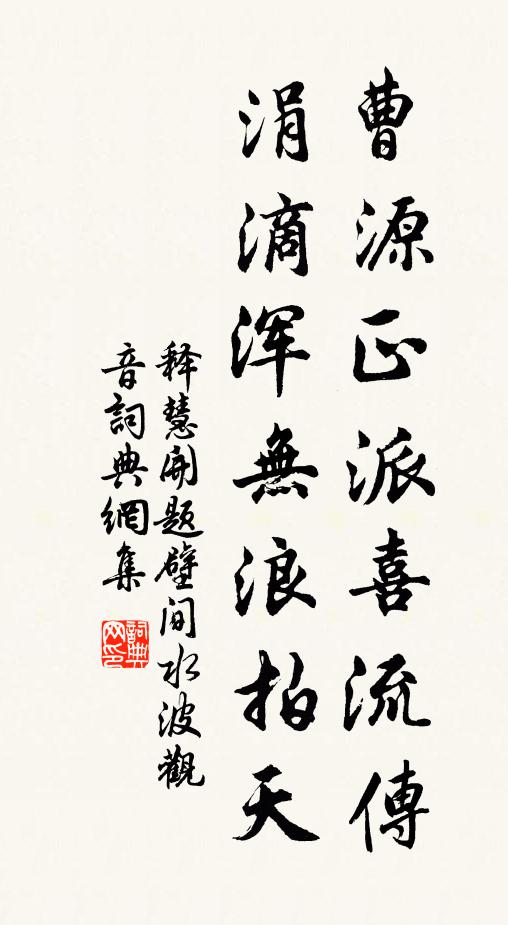 曹源正派喜流傳
涓滴渾無浪拍天
釋慧開題壁間水波觀
音詞典網集
詞典网印